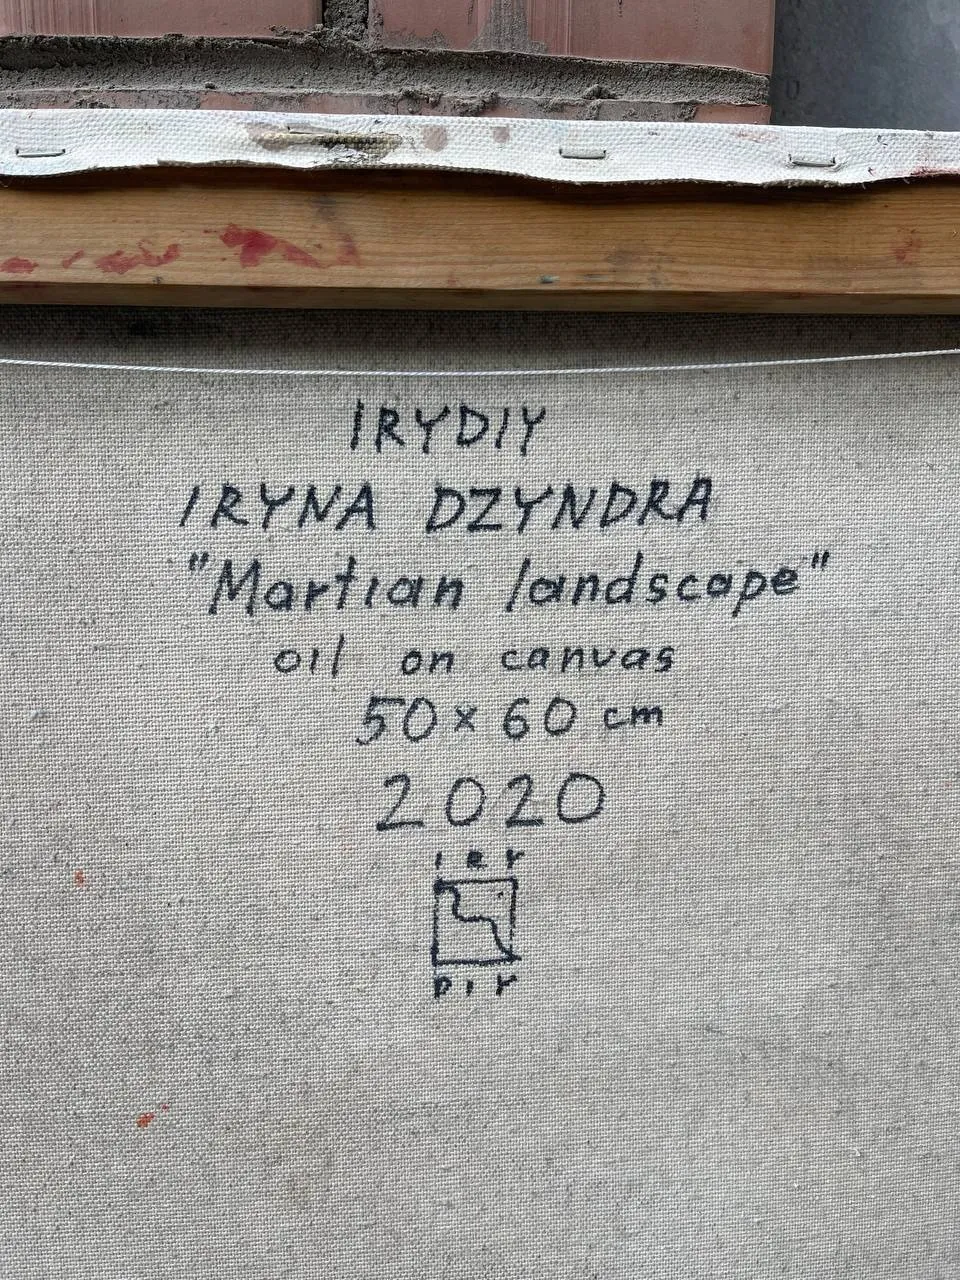 IRYDIY
IRYNA DZYNDRA
"Martian landscape"
oil on canvas
50 x 60 cm
2020